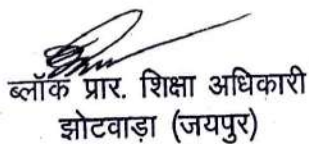 ब्लॉक प्रार. शिक्षा अधिकारी
झोटवाड़ा (जयपुर)